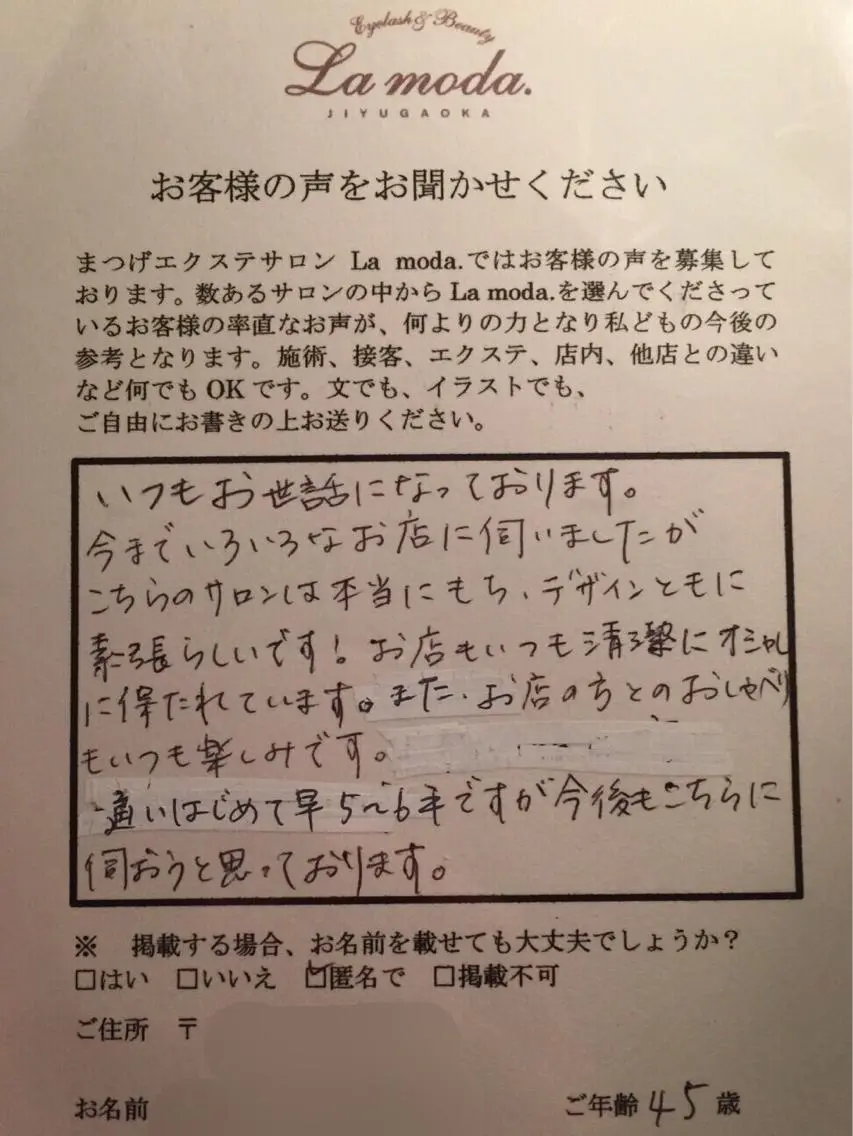 Eyelash & Beauty
La moda.
JIYUGAOKA
お客様の声をお聞かせください
まつげエクステサロン La moda.ではお客様の声を募集して
おります。数あるサロンの中から La moda.を選んでくださって
いるお客様の率直なお声が、何よりの力となり私どもの今後の
参考となります。施術、接客、エクステ、店内、他店との違い
など何でも OK です。文でも、イラストでも、
ご自由にお書きの上お送りください。
いつもお世話になっております。
今までいろいろなお店に伺いましたが
こちらのサロンは本当にもち、デザインともに
素張らしいです！お店もいつも清潔にオシャレ
に保たれています。また、お店の方とのおしゃべり
もいつも楽しみです。
通いはじめて早5〜6年ですが今後もこちらに
伺おうと思っております。
※ 掲載する場合、お名前を載せても大丈夫でしょうか？
□はい □いいえ ☑匿名で □掲載不可
ご住所 〒
お名前 ご年齢 45 歳